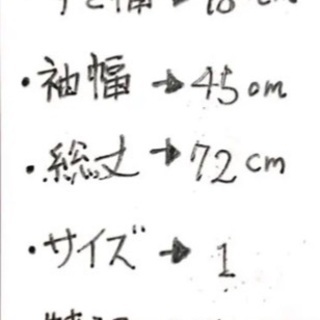 ・袖幅 → 45cm
・総丈 → 72cm
・サイズ → 1